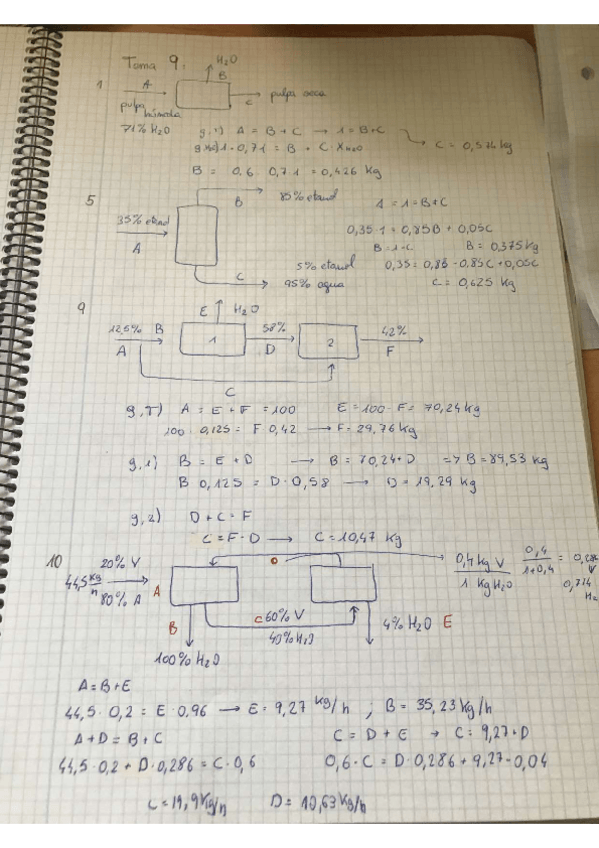 Tema 9:
1
A
H₂O
B
C
pulpa seca
pulpa húmeda
71% H₂O
g,τ) A = B + C → 1 = B+C
C = 0,574 kg
1 - 0,71 = B + C X H₂O
B = 0,6 0,71 = 0,426 kg
5
85% etanol
B
1 = 1 = B+C
35% etanol
A
0,35·1 = 0,85B + 0,05C
B = 1-C B = 0,375 kg
5% etanol
0,35 = 0,85 - 0,85C + 0,05C
C
95% agua
C = 0,625 kg
9
E H₂O
12,5% B
58%
42%
A
1
D
2
F
C
g,τ) A = E + F = 100 E = 100 - F = 70,24 kg
100 · 0,125 = F 0,42 → F = 29,76 kg
g,1) B = E + D → B = 70,24+D => B = 89,53 kg
B 0,125 = D · 0,58 → D = 19,29 kg
g,2) D + C = F
C = F - D → C = 10,47 kg
10
20% V
44,5 kg/h
80% A
A
D
0,4 kg V / 1 kg H₂O
0,4 / 1+0,4 = 0,286 V
0,714
C 60% V
40% H₂O
4% H₂O E
B
100% H₂O
A = B + E
44,5 · 0,2 = E · 0,96 → E = 9,27 kg/h ; B = 35,23 kg/h
A + D = B + C C = D + E → C = 9,27 + D
44,5 · 0,2 + D · 0,286 = C · 0,6 0,6 · C = D · 0,286 + 9,27 · 0,04
C = 19,9 kg/h D = 10,63 kg/h